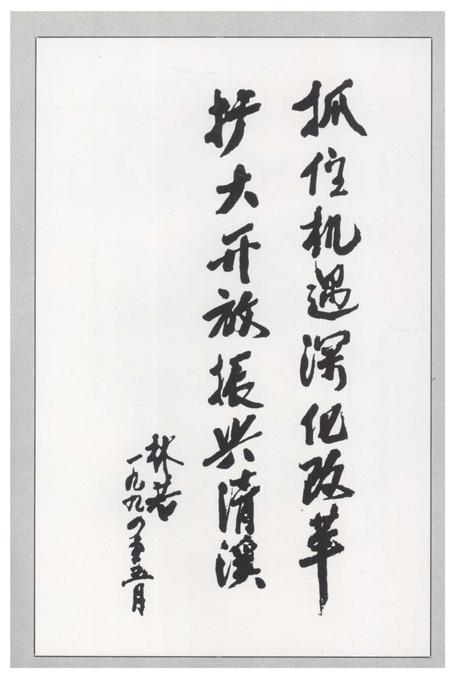 抓住机遇深化改革
扩大开放振兴清溪
林若
一九九四年五月